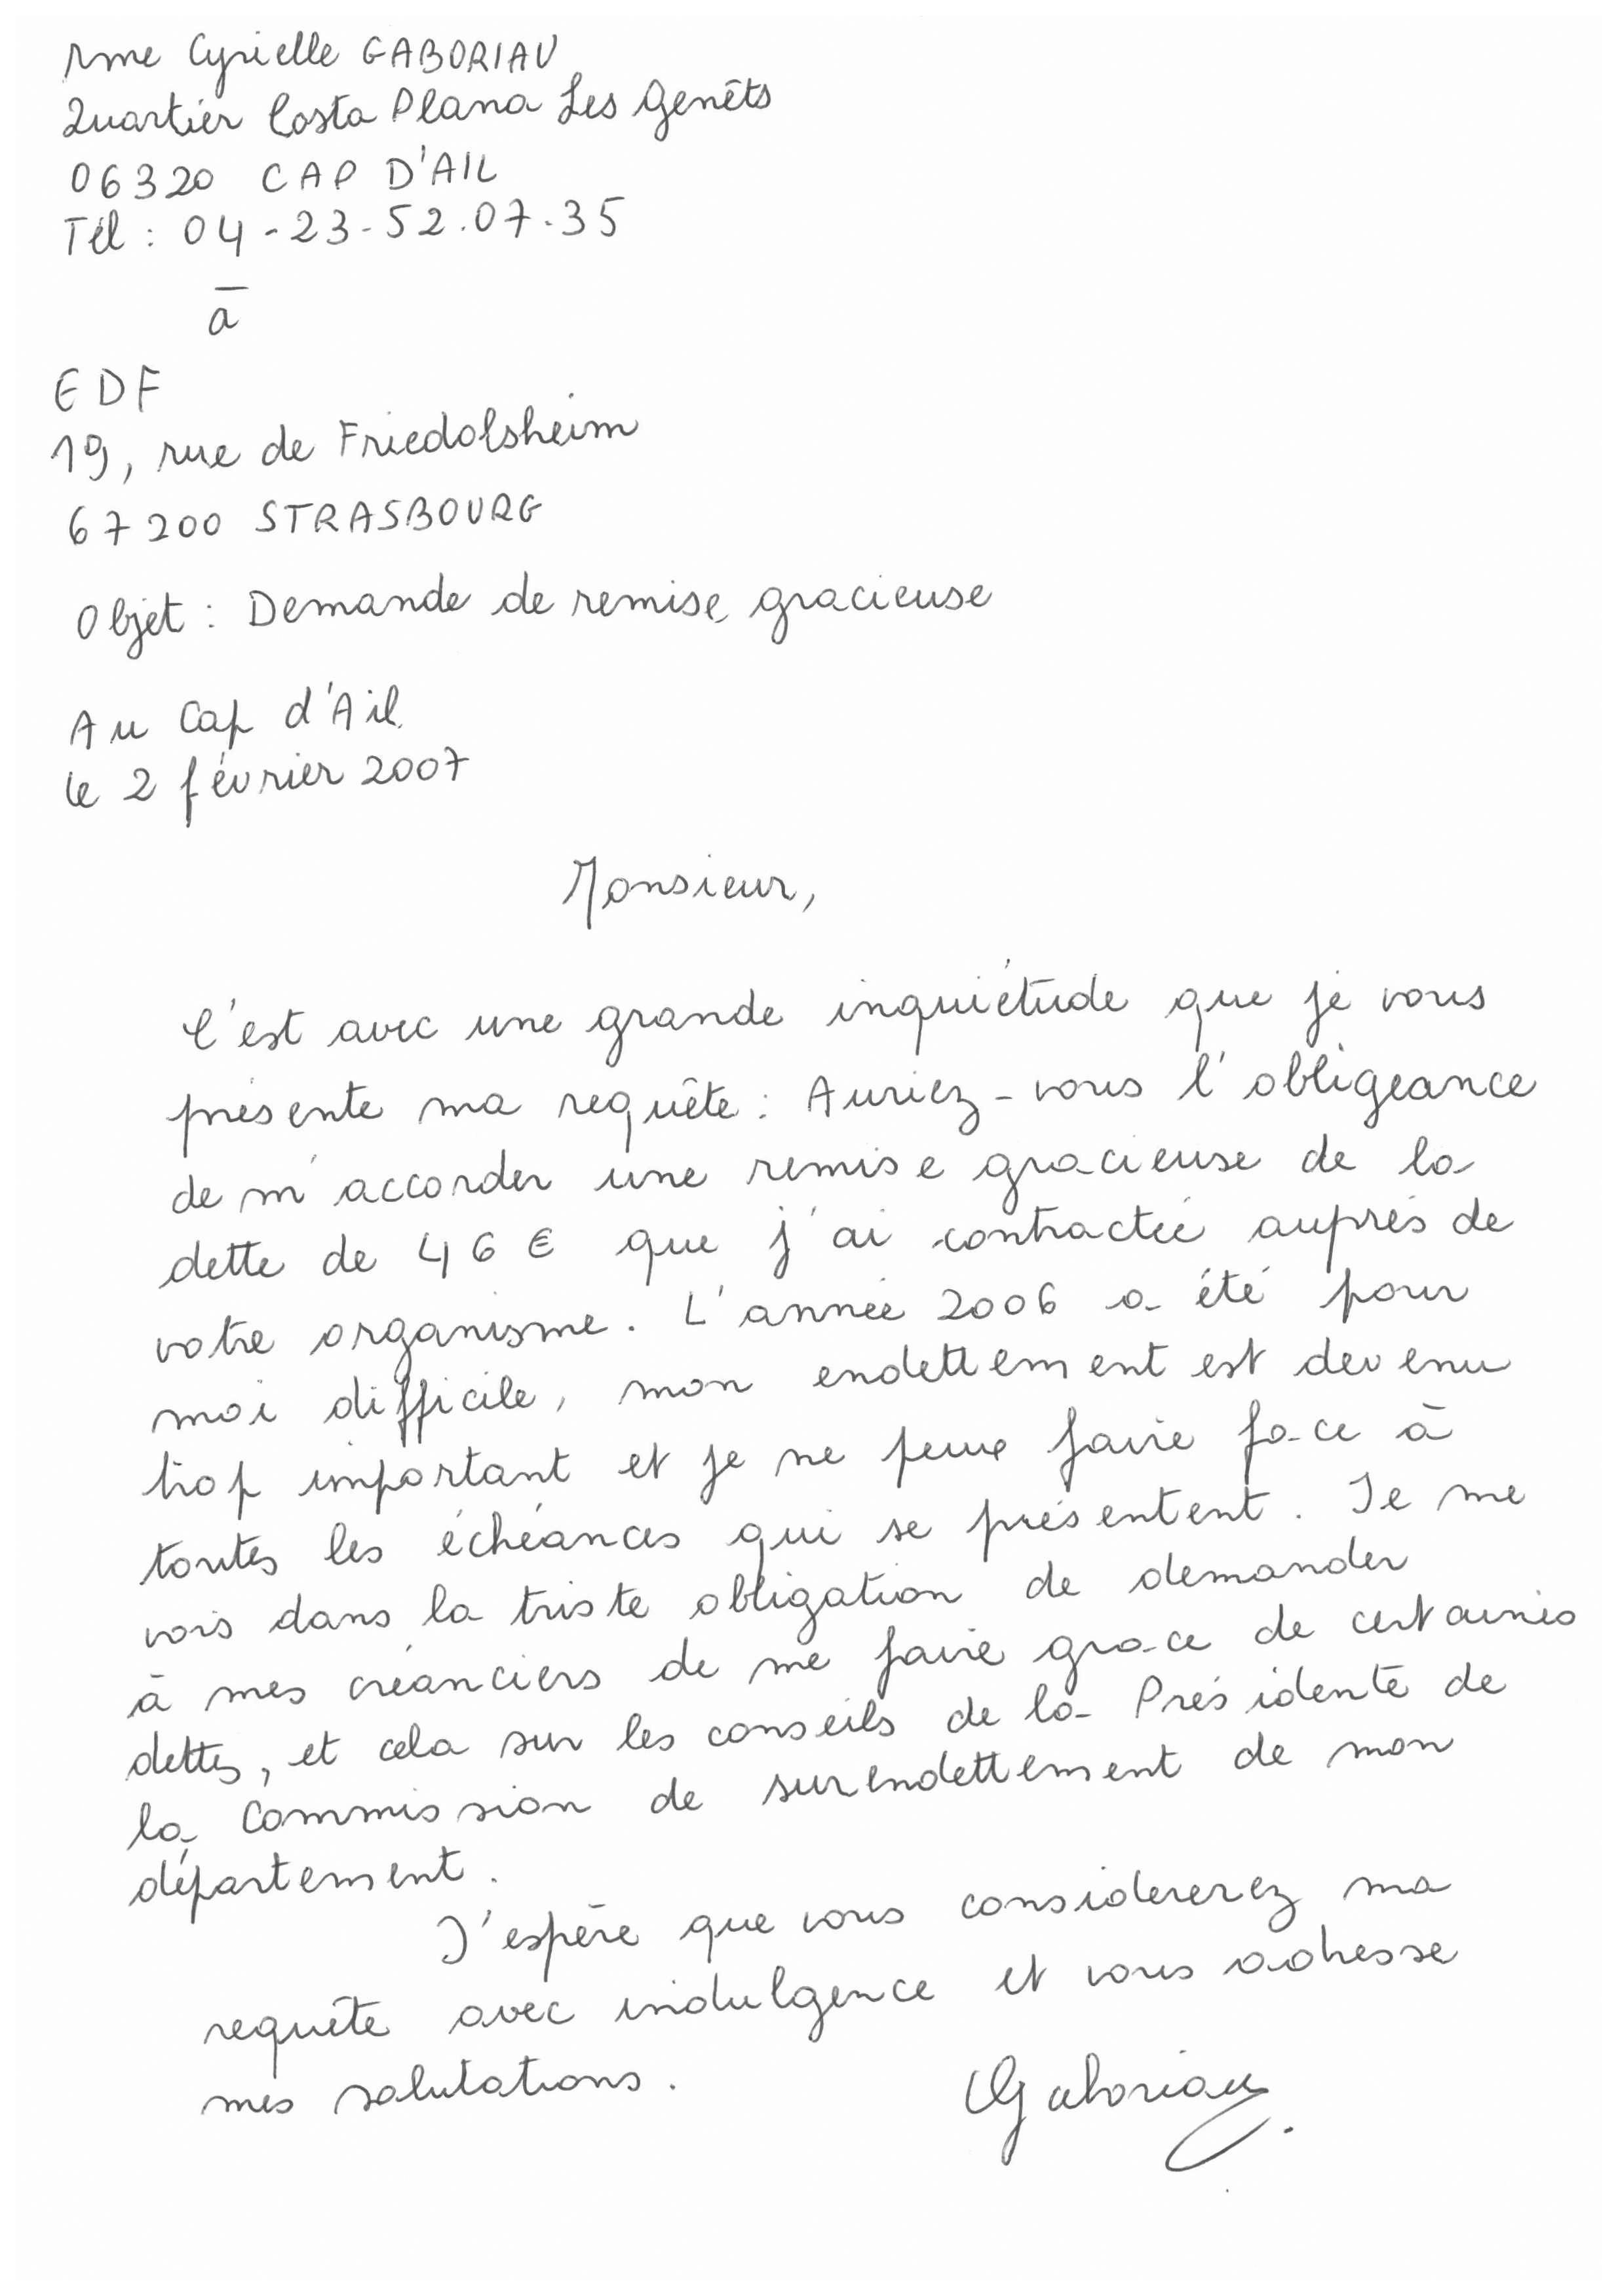 Mme Cyrielle GABORIAU
Quartier Costa Plana Les Genêts
06320 CAP D'AIL
Tél : 04-23-52.07.35
à
EDF
19, rue de Friedolsheim
67200 STRASBOURG
Objet : Demande de remise gracieuse
Au Cap d'Ail
le 2 février 2007
Monsieur,
C'est avec une grande inquiétude que je vous
présente ma requête : Auriez-vous l'obligeance
de m'accorder une remise gracieuse de la
dette de 46 € que j'ai contractée auprès de
votre organisme. L'année 2006 a été pour
moi difficile, mon endettement est devenu
trop important et je ne peux faire face à
toutes les échéances qui se présentent. Je me
vois dans la triste obligation de demander
à mes créanciers de me faire grace de certaines
dettes, et cela sur les conseils de la Présidente de
la Commission de surendettement de mon
département.
J'espère que vous considererez ma
requête avec indulgence et vous adresse
mes salutations.
CGaboriau